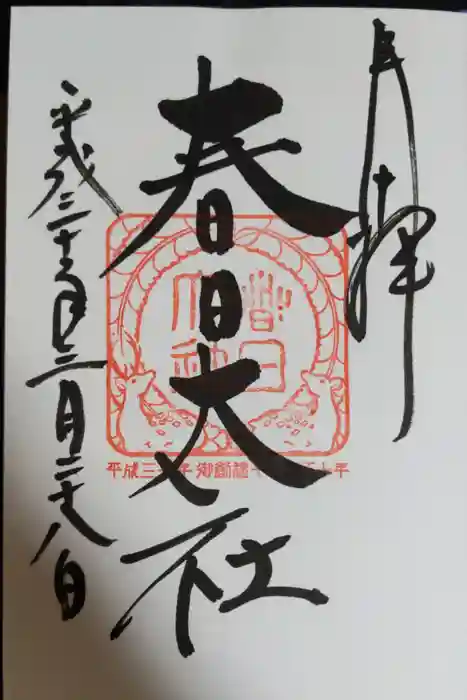 奉拝
春日大社
平成三十年三月二十八日
平成三十年 御創建千二百五十年